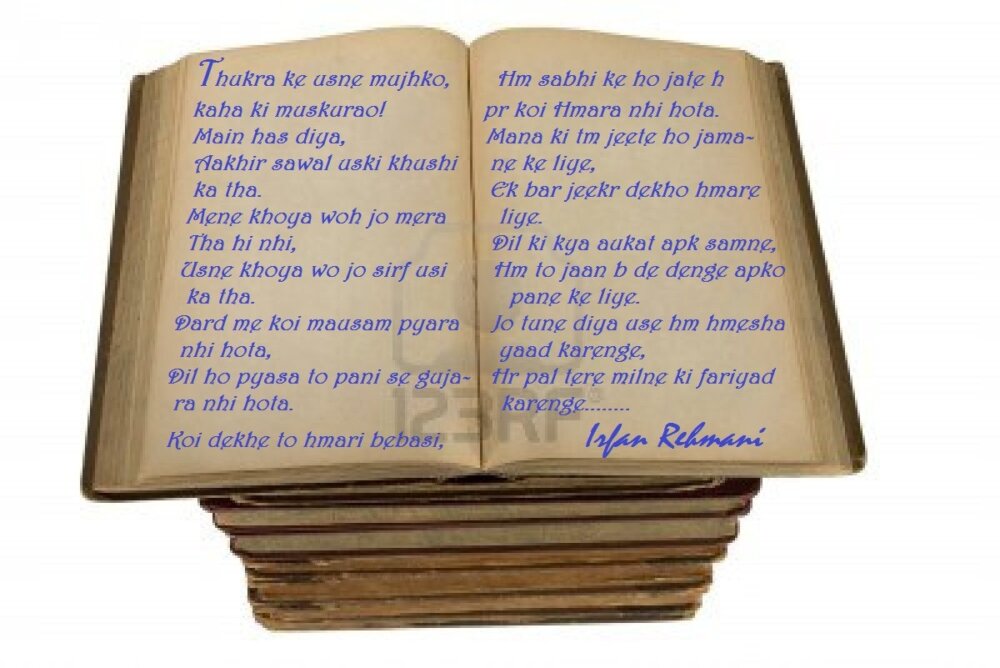 Thukra ke usne mujhko,
kaha ki muskurao!
Main has diya,
Aakhir sawal uski khushi
ka tha.
Mene khoya woh jo mera
Tha hi nhi,
Usne khoya wo jo sirf usi
ka tha.
Dard me koi mausam pyara
nhi hota,
Dil ho pyasa to pani se guja-
ra nhi hota.
Koi dekhe to hmari bebasi,
Hm sabhi ke ho jate h
pr koi Hmara nhi hota.
Mana ki tm jeete ho jama-
ne ke liye,
Ek bar jeekr dekho hmare
liye.
Dil ki kya aukat apk samne,
Hm to jaan b de denge apko
pane ke liye.
Jo tune diya use hm hmesha
yaad karenge,
Hr pal tere milne ki fariyad
karenge........
Irfan Rehmani
123RF